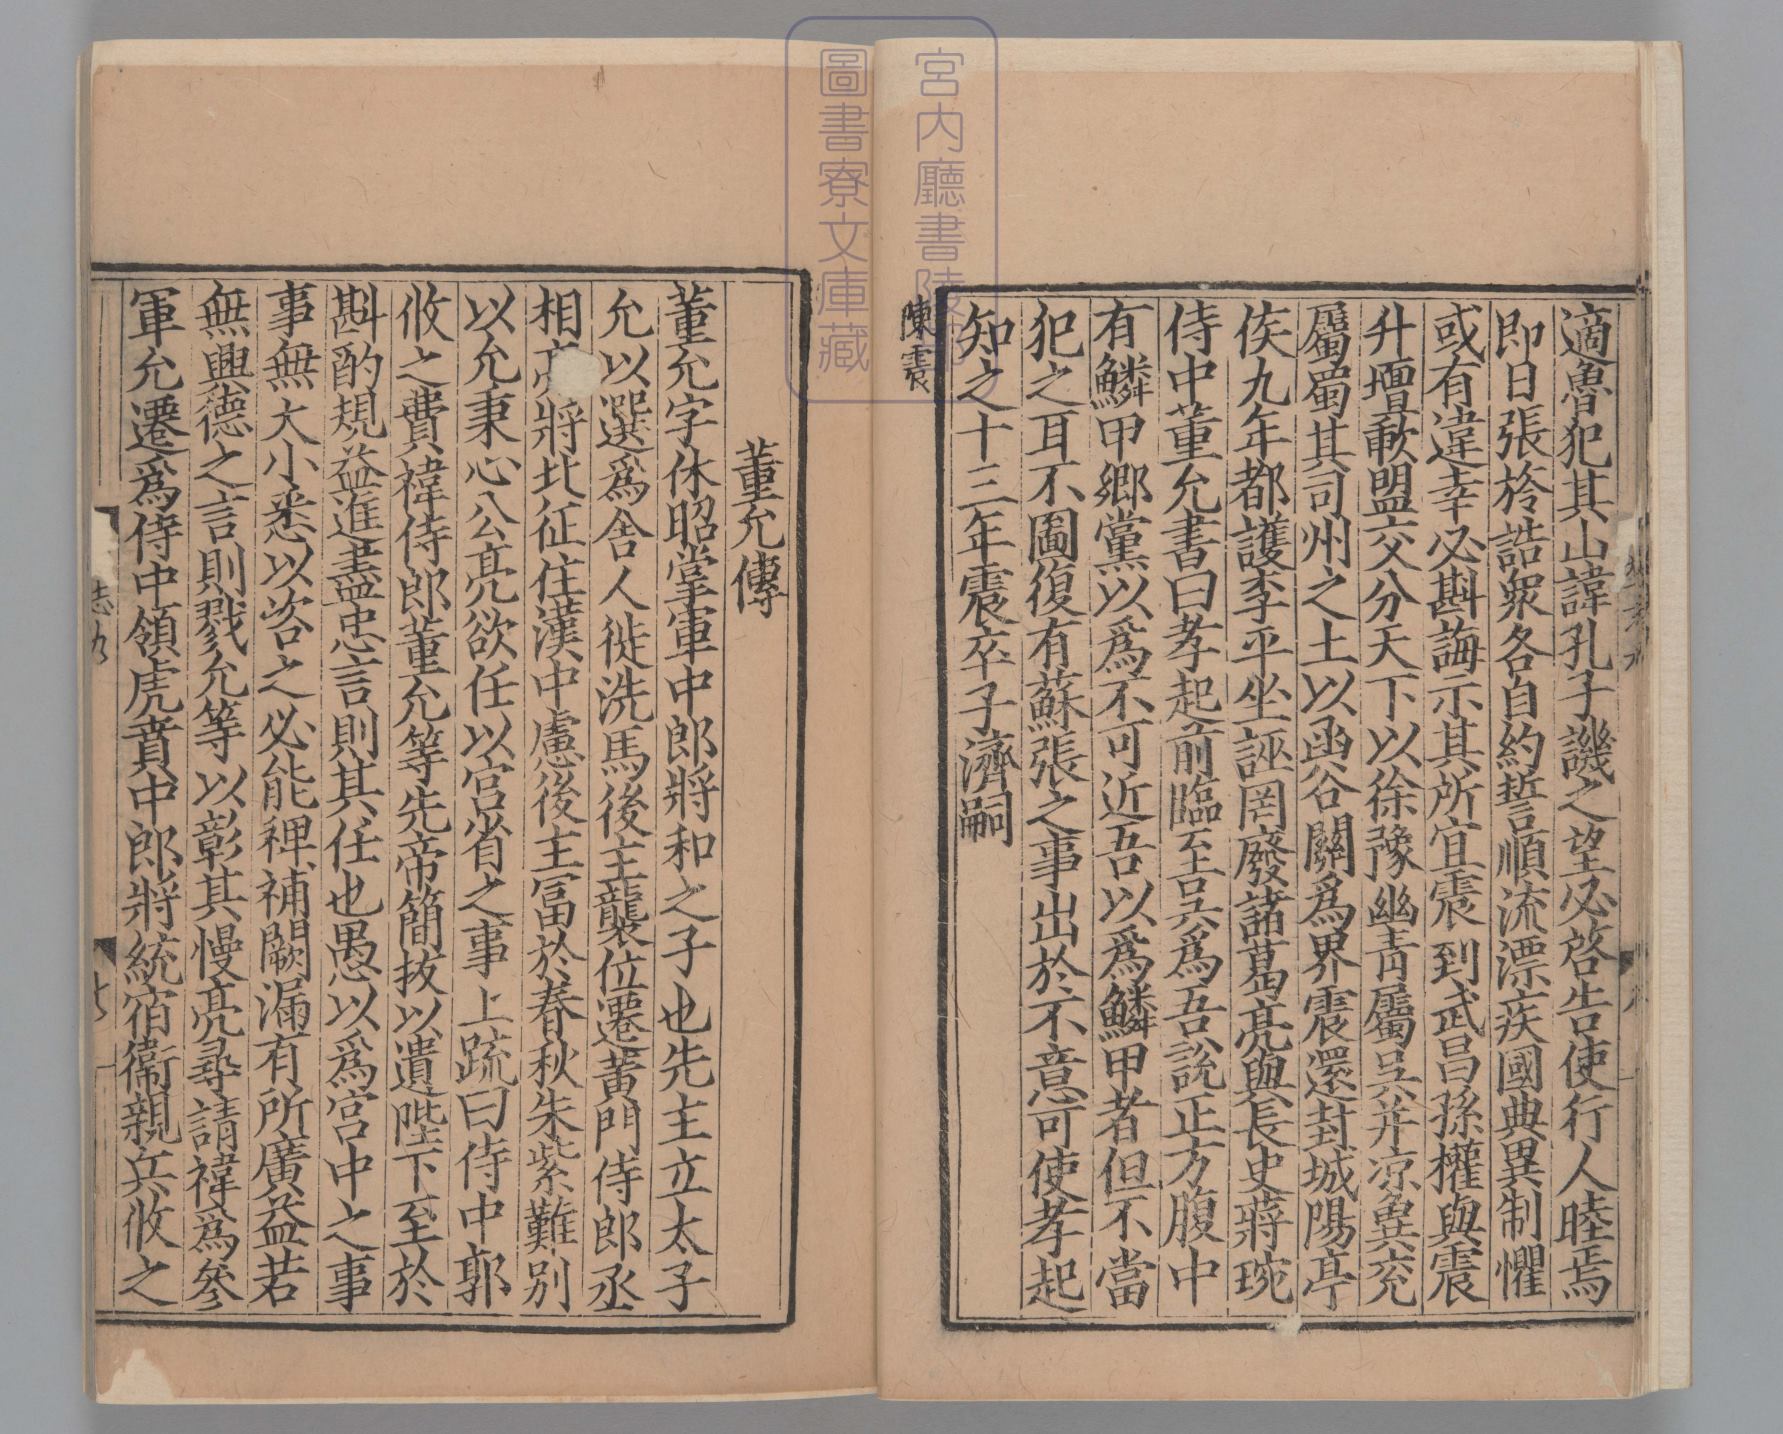 適魯犯其山諱孔子譏之望必啓告使行人睦焉
即日張旍誥衆各自約誓順流漂疾國典異制懼
或有違幸必斟誨示其所宜震到武昌孫權與震
升壇歃盟交分天下以徐豫幽青屬吳并凉兾兖
屬蜀其司州之土以函谷關爲界震還封城陽亭
侯九年都護李平坐誣罔廢諸葛亮與長史蔣琬
侍中董允書曰孝起前臨至吳爲吾說正方腹中
有鱗甲鄉黨以爲不可近吾以爲鱗甲者但不當
犯之耳不圖復有蘇張之事出於不意可使孝起
知之十三年震卒子濟嗣
陳震
董允傳
董允字休昭掌軍中郎將和之子也先主立太子
允以選爲舍人徙洗馬後主襲位遷黃門侍郎丞
相亮將北征住漢中慮後主富於春秋朱紫難別
以允秉心公亮欲任以宮省之事上疏曰侍中郭
攸之費禕侍郎董允等先帝簡拔以遺陛下至於
斟酌規益進盡忠言則其任也愚以爲宮中之事
事無大小悉以咨之必能裨補闕漏有所廣益若
無興德之言則戮允等以彰其慢亮尋請禕爲參
軍允遷爲侍中領虎賁中郎將統宿衞親兵攸之
宮内廳書陵部
圖書寮文庫藏